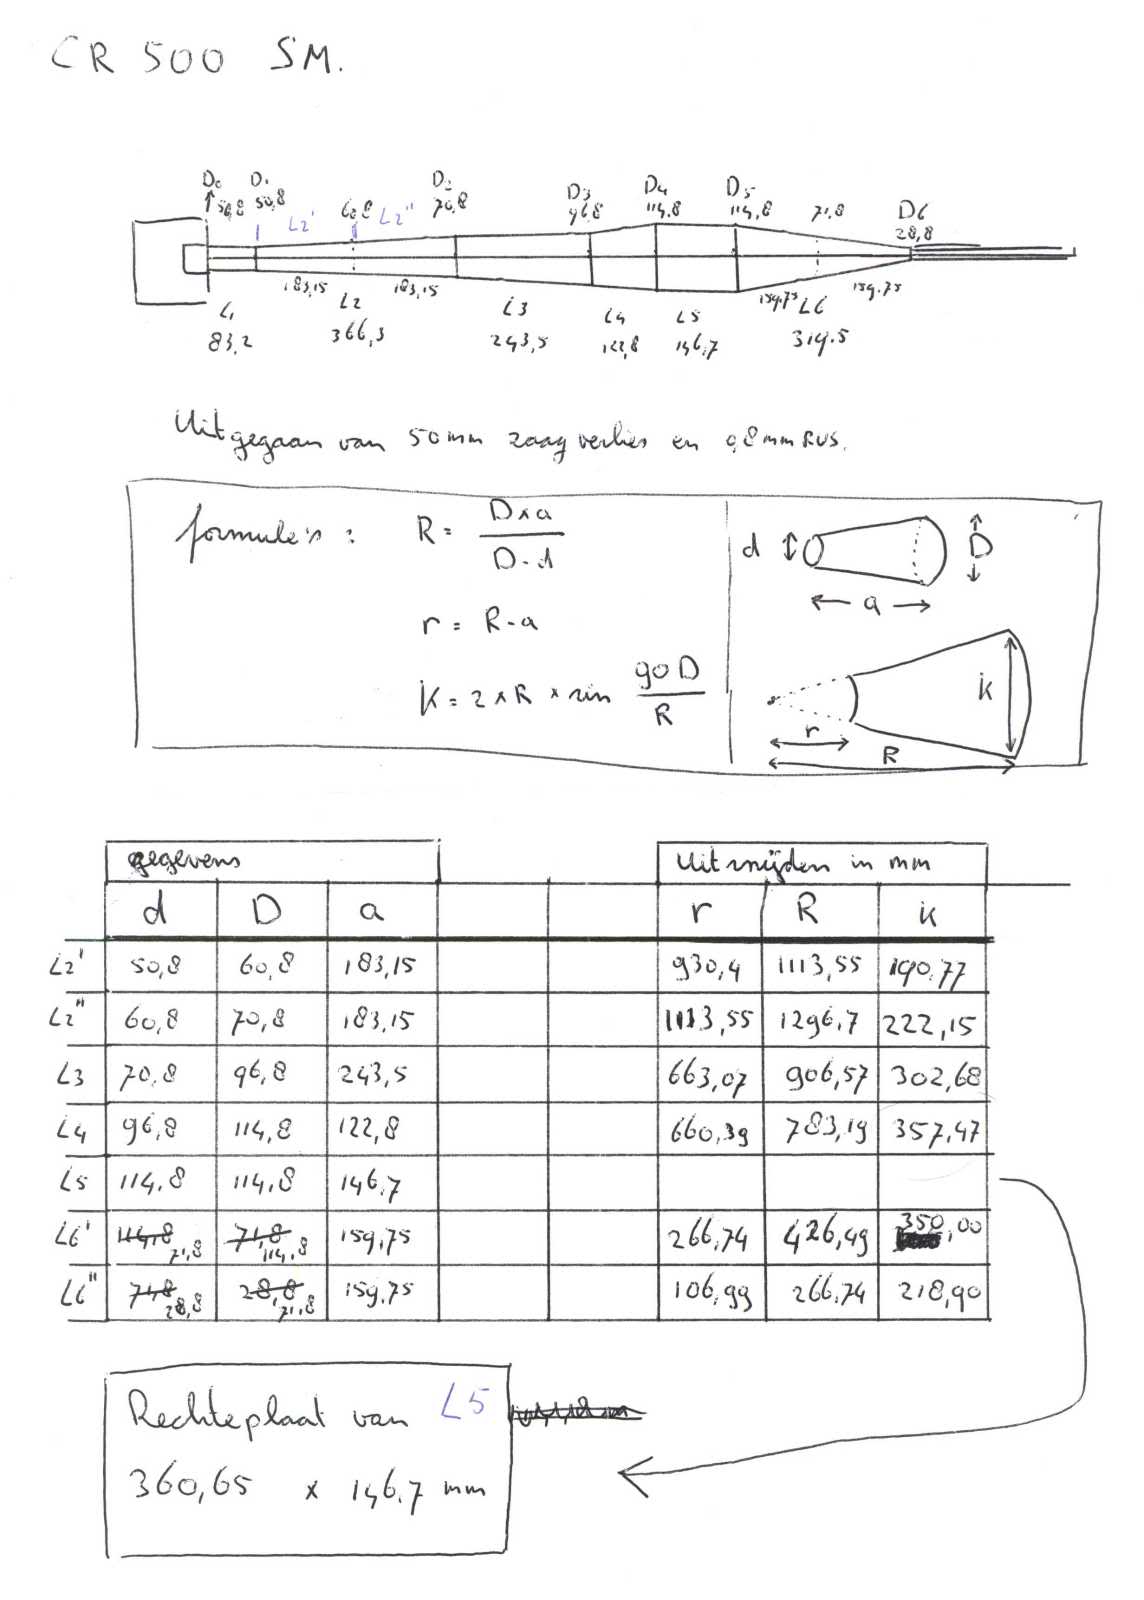 CR 500 SM.
D0 D1 D2 D3 D4 D5 D6
50,8 50,8 60,8 70,8 96,8 114,8 114,8 71,8 28,8
L2' L2"
183,15 183,15 159.75 159.75
L1 L2 L3 L4 L5 L6
83,2 366,3 243,5 122,8 146,7 319.5
Uitgegaan van 50mm zaagverlies en 0,8mm RVS.
formule's : R = D×a / D-d
r = R-a
k = 2×R × sin 90D / R
d D
a
k
r
R
gegevens Uitsnijden in mm
d D a r R k
L2' 50,8 60,8 183,15 930,4 1113,55 190,77
L2" 60,8 70,8 183,15 1113,55 1296,7 222,15
L3 70,8 96,8 243,5 663,07 906,57 302,68
L4 96,8 114,8 122,8 660,39 783,19 357,47
L5 114,8 114,8 146,7
L6' 114,8 71,8 71,8 114,8 159,75 266,74 426,49 350,00
L6" 71,8 28,8 28,8 71,8 159,75 106,99 266,74 218,90
Rechteplaat van L5
360,65 x 146,7 mm